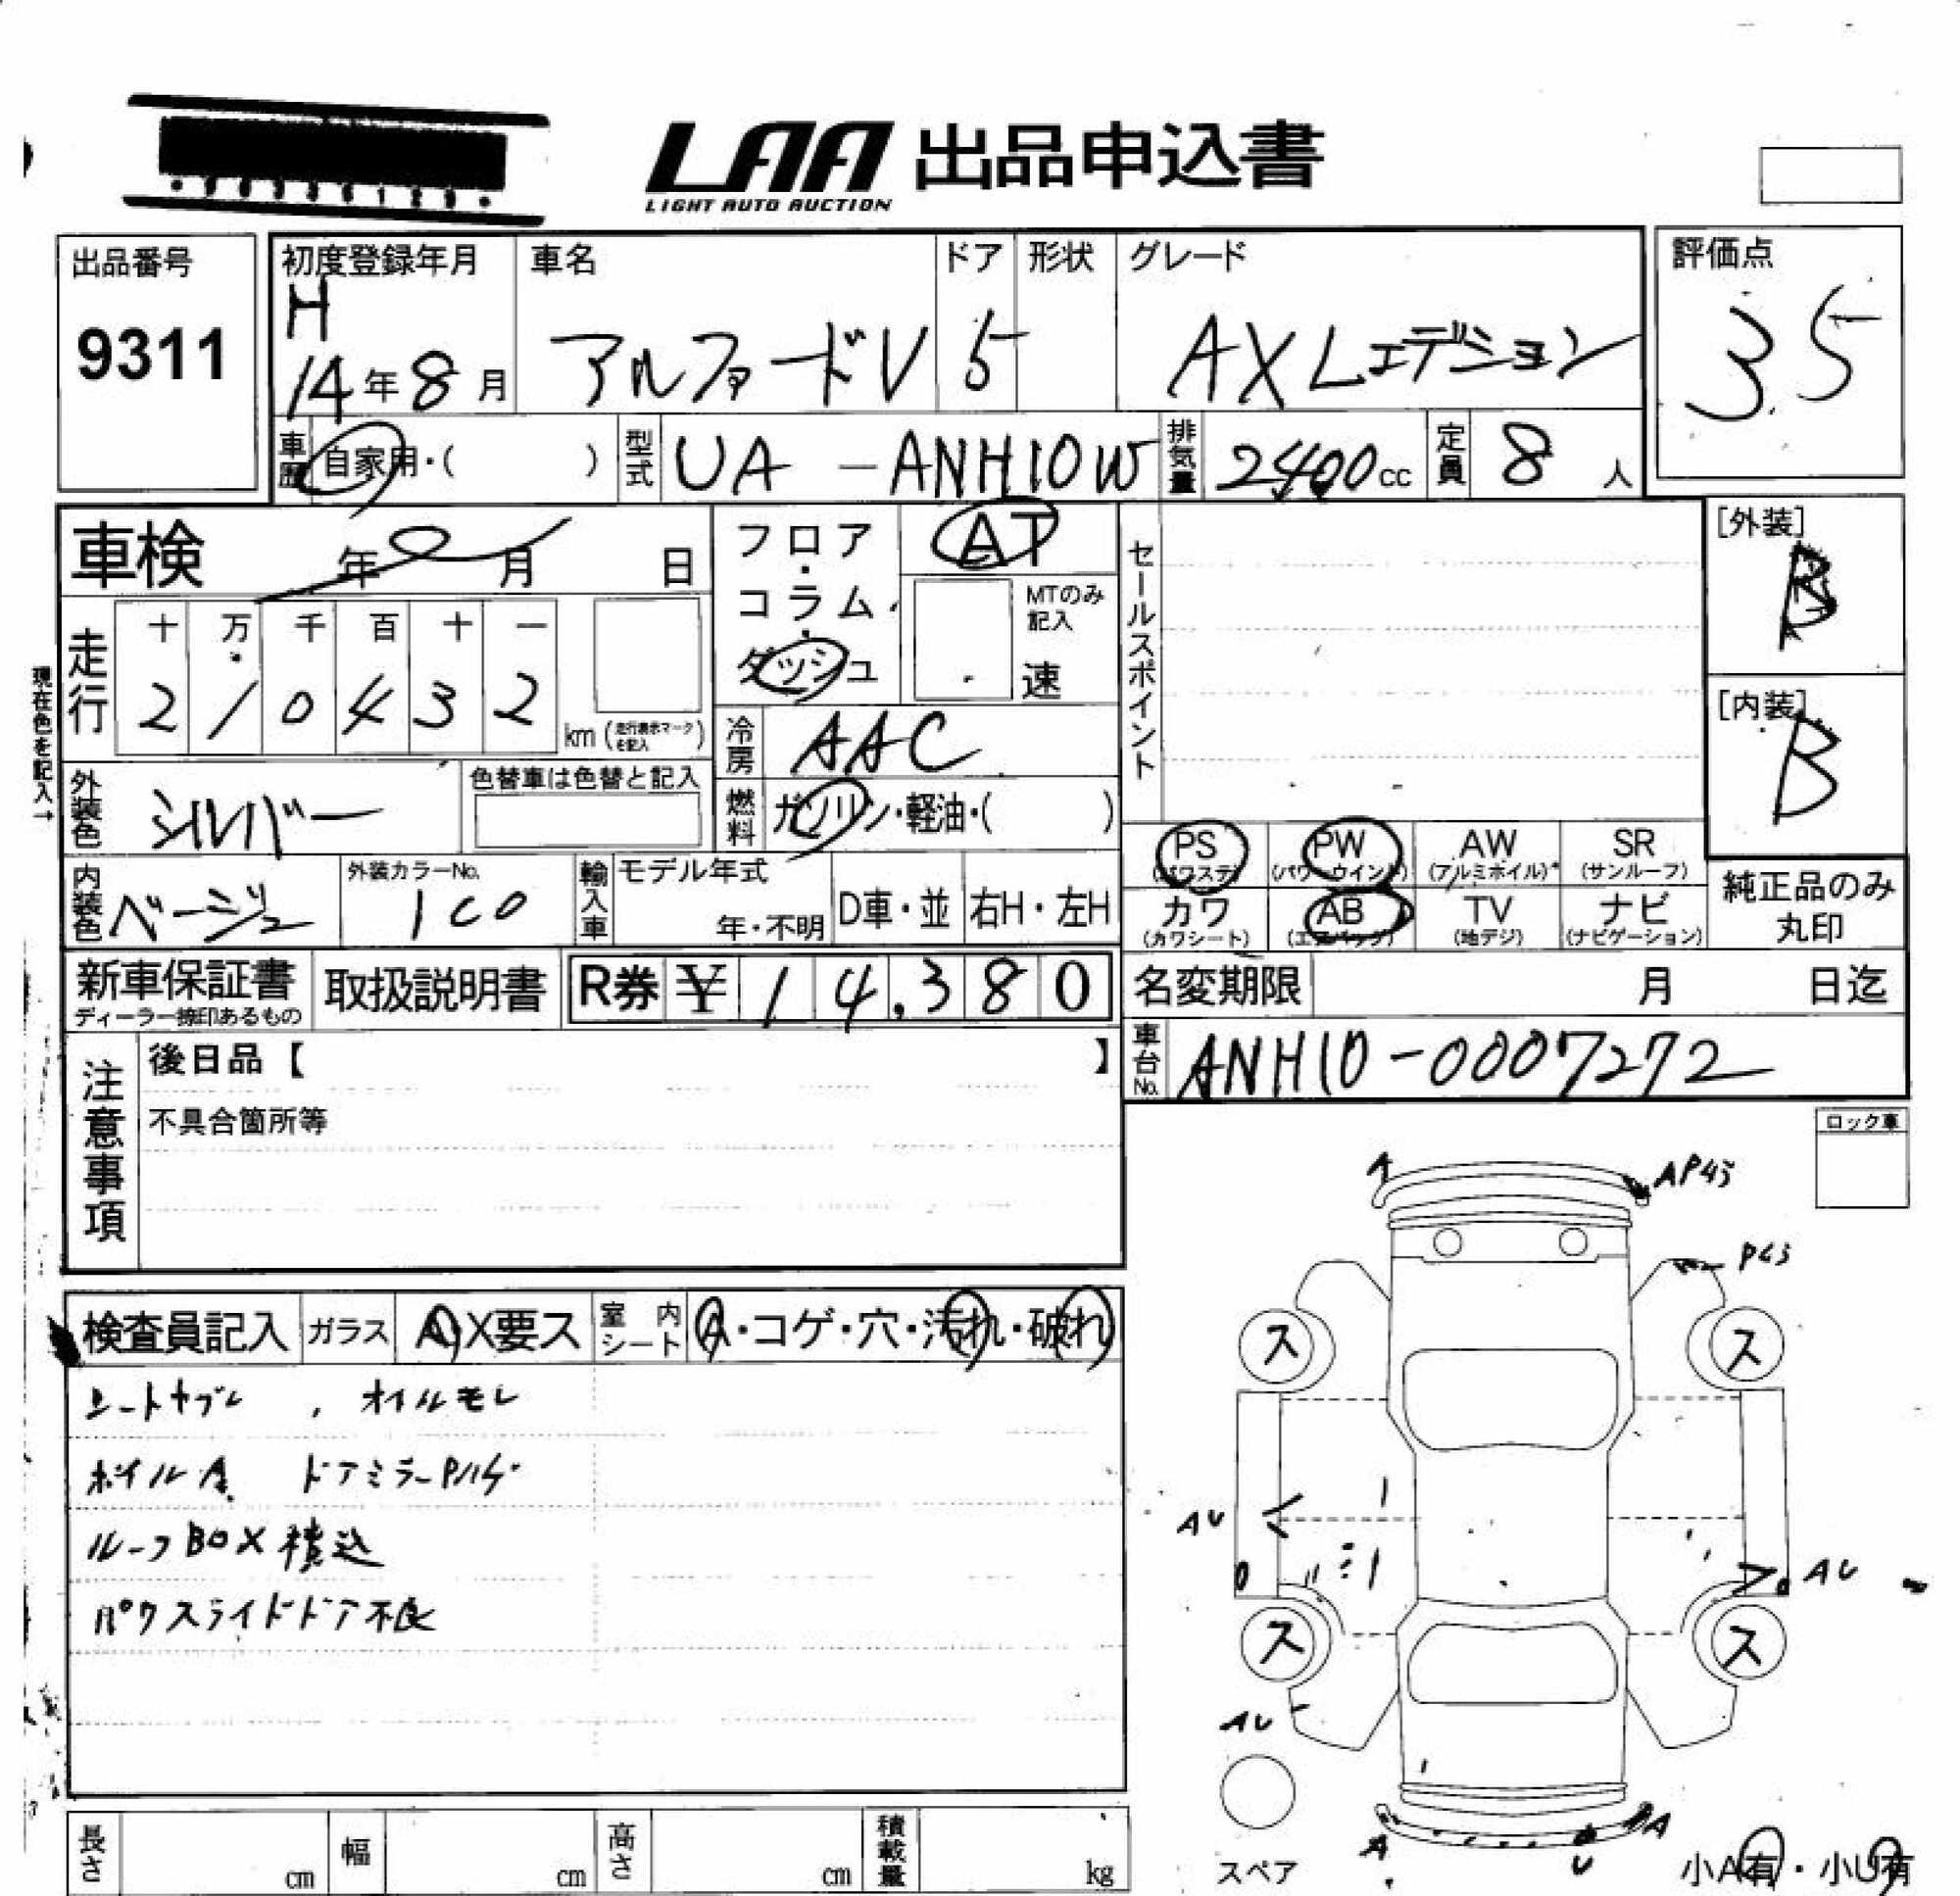 LAA 出品申込書
LIGHT AUTO AUCTION
出品番号
9311
初度登録年月
H
14年8月
車名
アルファードV
ドア
5
形状
グレード
AXLエデション
評価点
3.5
車歴 自家用・( )
型式 UA-ANH10W
排気量 2400cc
定員 8人
車検 年 月 日
フロア・コラム・ダッシュ
AT
MTのみ記入
速
セールスポイント
[外装]
B
[内装]
B
現在色を記入→
走行
十 万 千 百 十 一
2 1 0 4 3 2
km(走行表示マークを記入)
冷房 AAC
外装色 シルバー
色替車は色替と記入
燃料 ガソリン・軽油・( )
内装色 ベージュ
外装カラーNo.
1C0
輸入車
モデル年式
年・不明
D車・並
右H・左H
PS
(パワステ)
PW
(パワーウインド)
AW
(アルミホイル)
SR
(サンルーフ)
カワ
(カワシート)
AB
(エアバッグ)
TV
(地デジ)
ナビ
(ナビゲーション)
純正品のみ
丸印
新車保証書
ディーラー捺印あるもの
取扱説明書
R券 ¥14,380
名変期限 月 日迄
車台No. ANH10-0007272
注意事項
後日品【 】
不具合箇所等
ロック車
検査員記入
ガラス
A X要ス
室内シート
A・コゲ・穴・汚れ・破れ
シートヤブレ , オイルモレ
ホイルA ドアミラーPハゲ
ルーフBOX積込
パワスライドドア不良
A
ス
ス
AU
AU
ス
ス
AU
A
U
A
スペア
小A有・小U有
長さ cm
幅 cm
高さ cm
積載量 kg